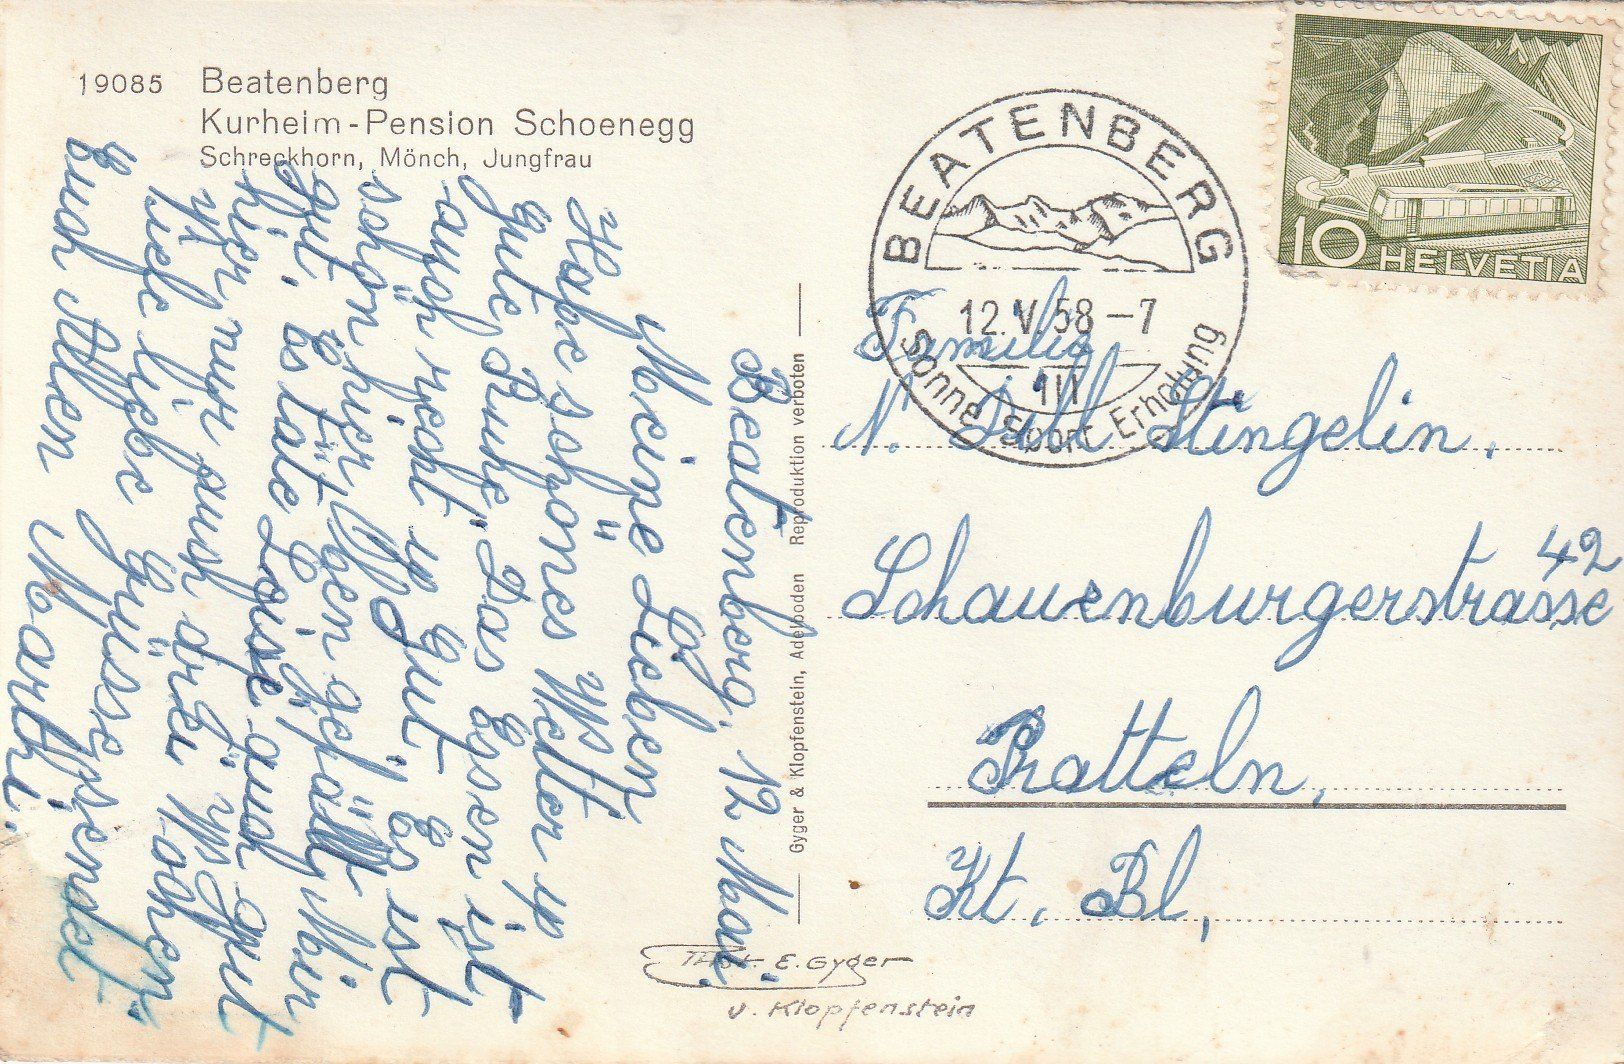 19085 Beatenberg
Kurheim-Pension Schoenegg
Schreckhorn, Mönch, Jungfrau
Beatenberg, 12 Mai
Meine Lieben
Habe schönes Wetter u
Gute Ruhe. Das Essen ist
auch recht u Gut, Es ist
schon hier oben gefällt Mir
gut. Es täte Loise auch gut
hier nur auch drei Wochen.
Viele liebe Grüsse sendet
Euch Allen Marthi.
Gyger & Klopfenstein, Adelboden Reproduktion verboten
Phot. E. Gyger
u. Klopfenstein
BEATENBERG
12.V.58-7
III
Sonne Sport Erholung
10 HELVETIA
Familie
Stingelin,
Schauenburgerstrasse 42
Pratteln,
Kt, Bl,